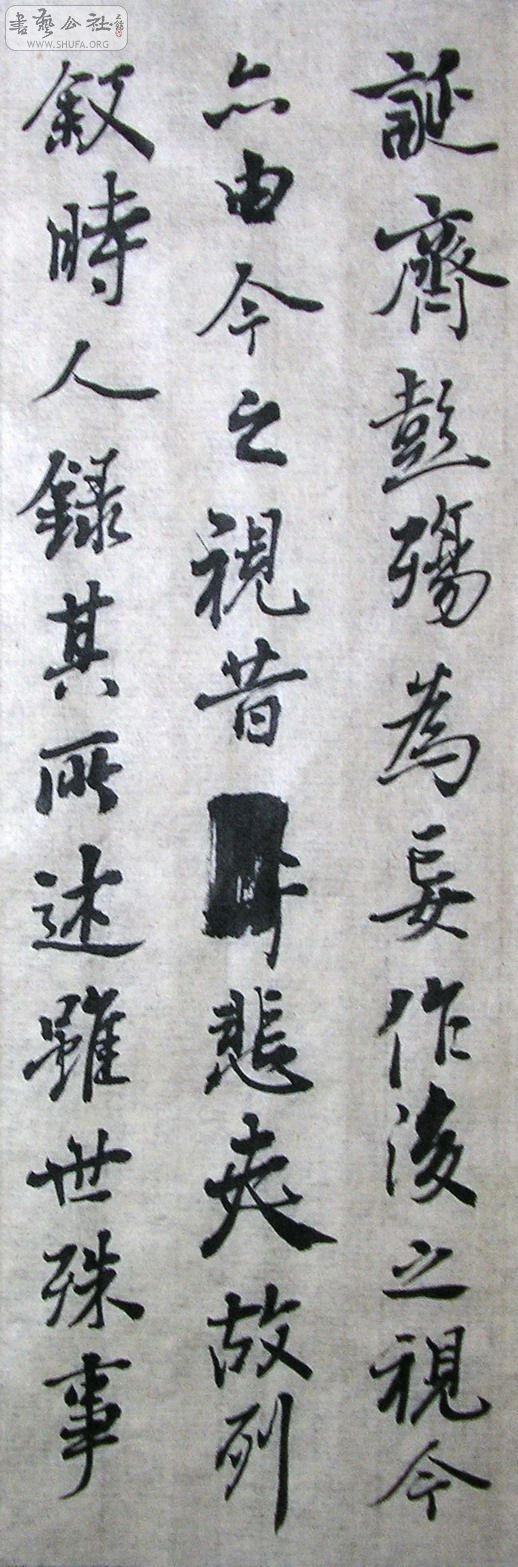 書藝公社
WWW.SHUFA.ORG
誕齊彭殤為妄作後之視今
亦由今之視昔悲夫故列
敘時人錄其所述雖世殊事